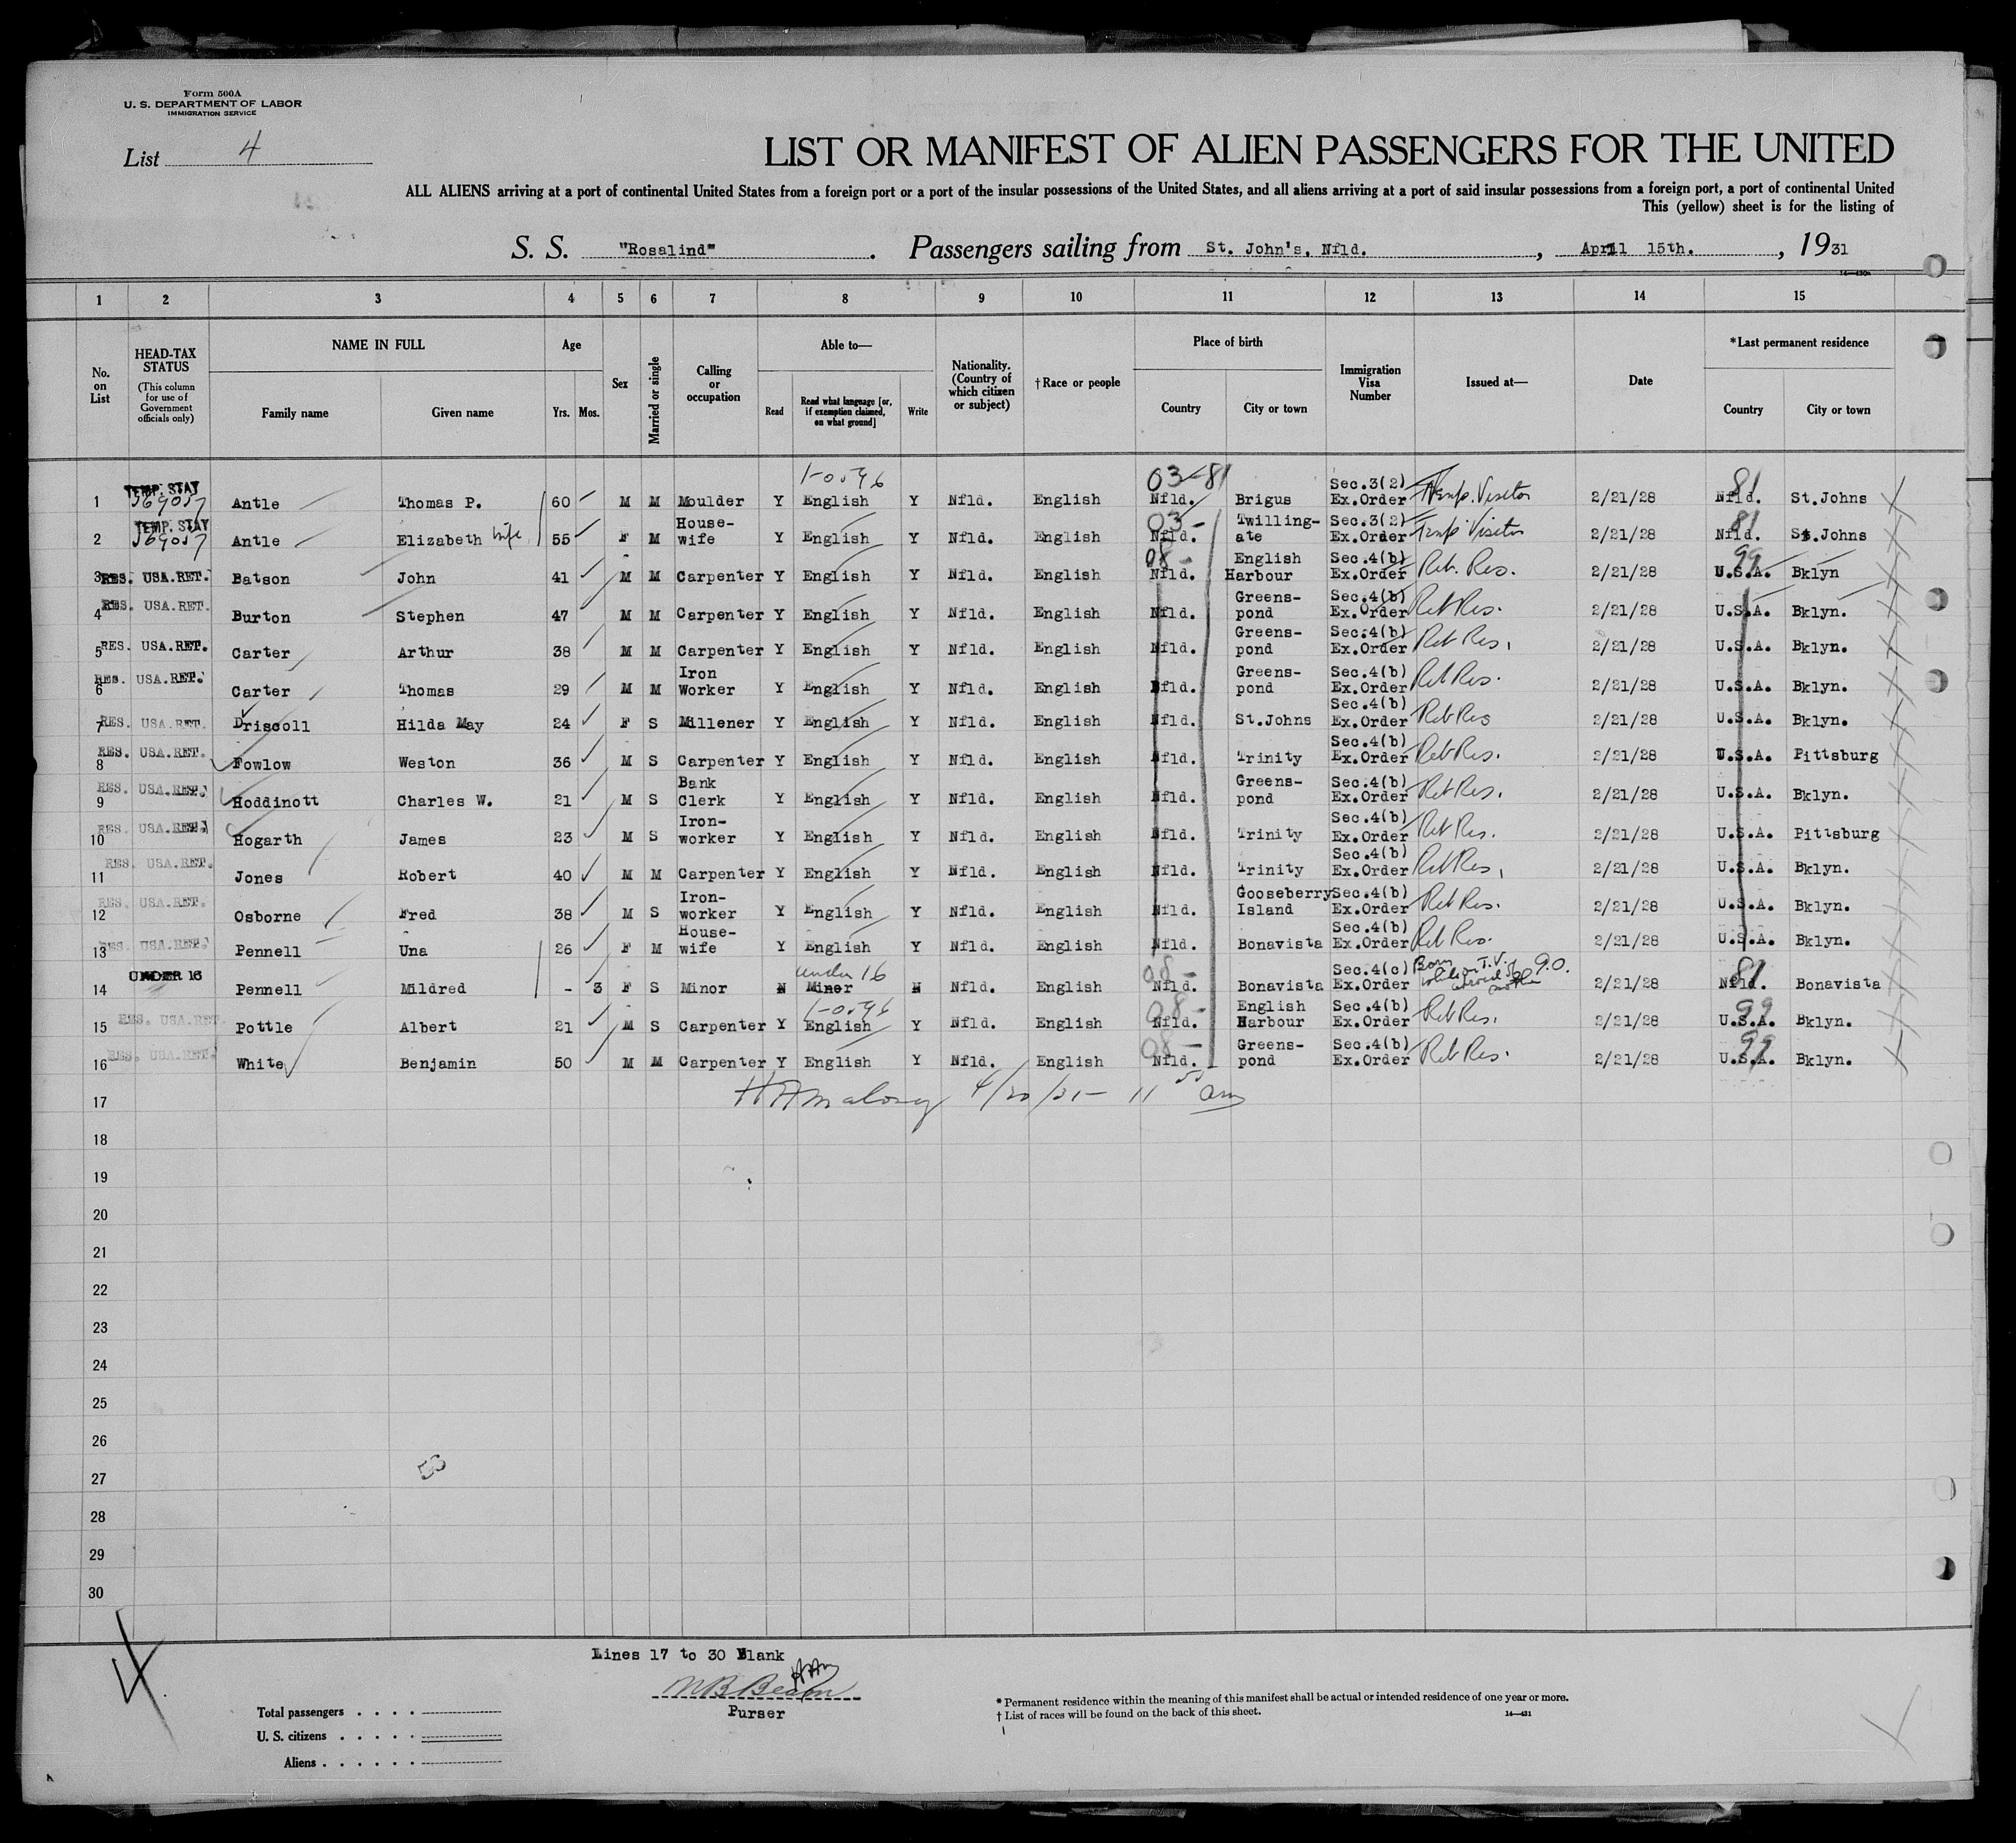 Form 500A
U. S. DEPARTMENT OF LABOR
IMMIGRATION SERVICE
List 4
LIST OR MANIFEST OF ALIEN PASSENGERS FOR THE UNITED
ALL ALIENS arriving at a port of continental United States from a foreign port or a port of the insular possessions of the United States, and all aliens arriving at a port of said insular possessions from a foreign port, a port of continental United
This (yellow) sheet is for the listing of
S. S. "Rosalind". Passengers sailing from St. John's, Nfld., April 15th., 1931
1 2 3 4 5 6 7 8 9 10 11 12 13 14 15
No. on List
HEAD-TAX STATUS (This column for use of Government officials only)
NAME IN FULL Family name Given name
Age Yrs. Mos.
Sex
Married or single
Calling or occupation
Able to— Read Read what language [or, if exemption claimed, on what ground] Write
Nationality. (Country of which citizen or subject)
† Race or people
Place of birth Country City or town
Immigration Visa Number
Issued at—
Date
*Last permanent residence Country City or town
1 TEMP. STAY Antle Thomas P. 60 M M Moulder Y English Y Nfld. English 03-81 Nfld. Brigus Sec.3(2) Ex.Order Temp. Visitor 2/21/28 81 Nfld. St.Johns
2 TEMP. STAY Antle Elizabeth Wife 55 F M House-wife Y English Y Nfld. English 03- Nfld. Twilling-ate Sec.3(2) Ex.Order Temp Visitor 2/21/28 81 Nfld. St.Johns
3 RES. USA.RET. Batson John 41 M M Carpenter Y English Y Nfld. English 08- Nfld. English Harbour Sec.4(b) Ex.Order Ret. Res. 2/21/28 99 U.S.A. Bklyn
4 RES. USA.RET. Burton Stephen 47 M M Carpenter Y English Y Nfld. English Nfld. Greens-pond Sec.4(b) Ex.Order Ret Res. 2/21/28 U.S.A. Bklyn.
5 RES. USA.RET. Carter Arthur 38 M M Carpenter Y English Y Nfld. English Nfld. Greens-pond Sec.4(b) Ex.Order Ret Res. 2/21/28 U.S.A. Bklyn.
6 RES. USA.RET. Carter Thomas 29 M M Iron Worker Y English Y Nfld. English Nfld. Greens-pond Sec.4(b) Ex.Order Ret Res. 2/21/28 U.S.A. Bklyn.
7 RES. USA.RET. Driscoll Hilda May 24 F S Millener Y English Y Nfld. English Nfld. St.Johns Sec.4(b) Ex.Order Ret Res 2/21/28 U.S.A. Bklyn.
8 RES. USA.RET. Fowlow Weston 36 M S Carpenter Y English Y Nfld. English Nfld. Trinity Sec.4(b) Ex.Order Ret Res. 2/21/28 U.S.A. Pittsburg
9 RES. USA.RET. Hoddinott Charles W. 21 M S Bank Clerk Y English Y Nfld. English Nfld. Greens-pond Sec.4(b) Ex.Order Ret Res. 2/21/28 U.S.A. Bklyn.
10 RES. USA.RET. Hogarth James 23 M S Iron-worker Y English Y Nfld. English Nfld. Trinity Sec.4(b) Ex.Order Ret Res. 2/21/28 U.S.A. Pittsburg
11 RES. USA.RET. Jones Robert 40 M M Carpenter Y English Y Nfld. English Nfld. Trinity Sec.4(b) Ex.Order Ret Res. 2/21/28 U.S.A. Bklyn.
12 RES. USA.RET. Osborne Fred 38 M S Iron-worker Y English Y Nfld. English Nfld. Gooseberry Island Sec.4(b) Ex.Order Ret Res. 2/21/28 U.S.A. Bklyn.
13 RES. USA.RET. Pennell Una 26 F M House-wife Y English Y Nfld. English Nfld. Bonavista Sec.4(b) Ex.Order Ret Res. 2/21/28 U.S.A. Bklyn.
14 UNDER 16 Pennell Mildred - 3 F S Minor N under 16 Minor N Nfld. English 08- Nfld. Bonavista Sec.4(c) Ex.Order Born while on T.V. abroad of mother 2/21/28 81 Nfld. Bonavista
15 RES. USA.RET. Pottle Albert 21 M S Carpenter Y English Y Nfld. English 08- Nfld. English Harbour Sec.4(b) Ex.Order Ret Res. 2/21/28 99 U.S.A. Bklyn.
16 RES. USA.RET. White Benjamin 50 M M Carpenter Y English Y Nfld. English 08- Nfld. Greens-pond Sec.4(b) Ex.Order Ret Res. 2/21/28 99 U.S.A. Bklyn.
17 4/20/31- 11 50 am
18
19
20
21
22
23
24
25
26
27
28
29
30
4
Lines 17 to 30 Blank
Purser
Total passengers
U. S. citizens
Aliens
* Permanent residence within the meaning of this manifest shall be actual or intended residence of one year or more.
† List of races will be found on the back of this sheet.
14—431